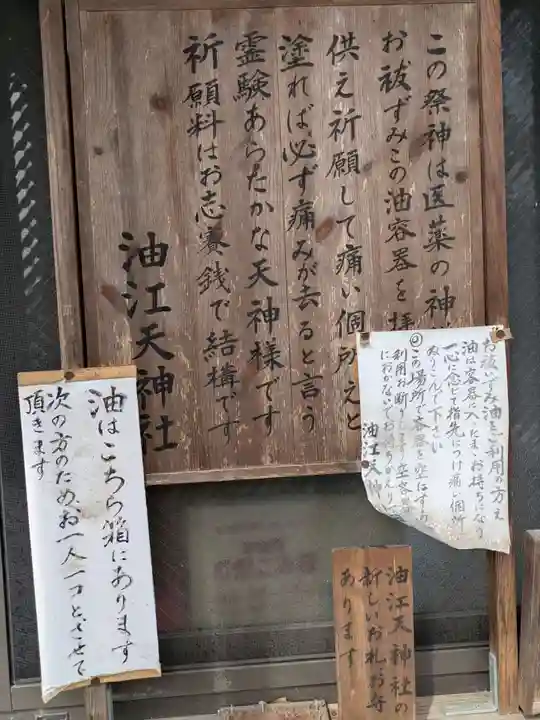 この祭神は医薬の神
お祓ずみこの油容器を
供え祈願して痛い個所えと
塗れば必ず痛みが去ると言う
霊験あらたかな天神様です
祈願料はお志賽銭で結構です
油江天神社
お祓いずみ油をご利用の方え
油は容器に入たまゝお持ちになり
一心に念じて指先につけ痛い個所
ぬりこんで下さい
◎この場所で容器を空にする
利用お断りします空容器
におかないでお持ちかえり
油江天神
油はこちら箱にあります
次の方のためお一人一コとさせて
頂きます
油江天神社の
新しいお札お守
あります